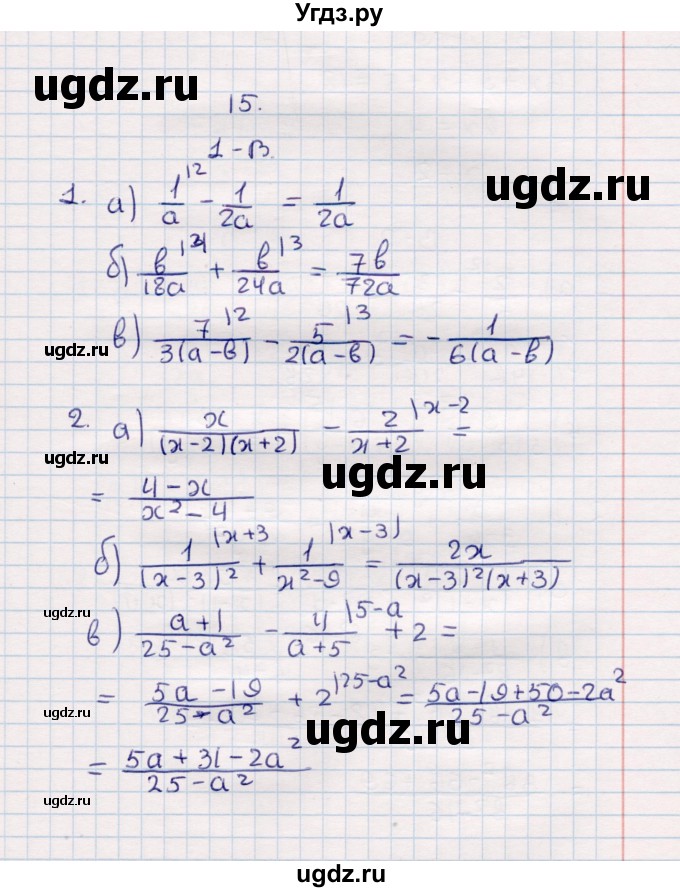 Угдз.ру
ugdz.ru
15.
ugdz.ru
1-В.
1. а) 1/a |2 - 1/2a = 1/2a
б) b/18a |4 + b/24a |3 = 7b/72a
ugdz.ru
в) 7/3(a-b) |2 - 5/2(a-b) |3 = - 1/6(a-b)
2. а) x/(x-2)(x+2) - 2/x+2 |x-2 =
ugdz.ru
ugdz.ru
= 4-x/x²-4
б) 1/(x-3)² |x+3 + 1/x²-9 |x-3) = 2x/(x-3)²(x+3)
ugdz.ru
в) a+1/25-a² - 4/a+5 |5-a + 2 =
= 5a-19/25-a² + 2 |25-a² = 5a-19+50-2a²/25-a²
ugdz.ru
ugdz.ru
= 5a+31-2a²/25-a²
ugdz.ru
ugdz.ru